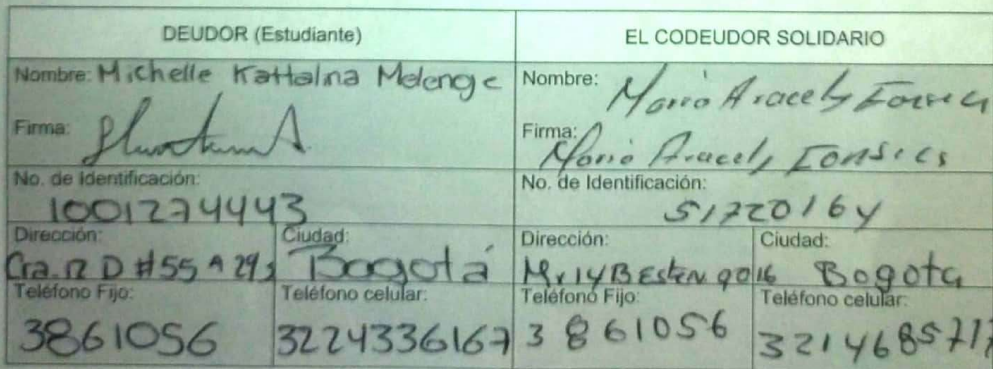 DEUDOR (Estudiante)
EL CODEUDOR SOLIDARIO
Nombre: Michelle Kattalina Melenge
Nombre: Maria Aracely Fonseca
Firma:
Firma: Maria Aracely Fonseca
No. de Identificación: 1001274443
No. de Identificación: 51720164
Dirección: Cra. 12 D #55 A 29 s
Ciudad: Bogotá
Dirección:
Ciudad: Bogota
Teléfono Fijo: 3861056
Teléfono celular: 3224336167
Teléfono Fijo: 3861056
Teléfono celular: